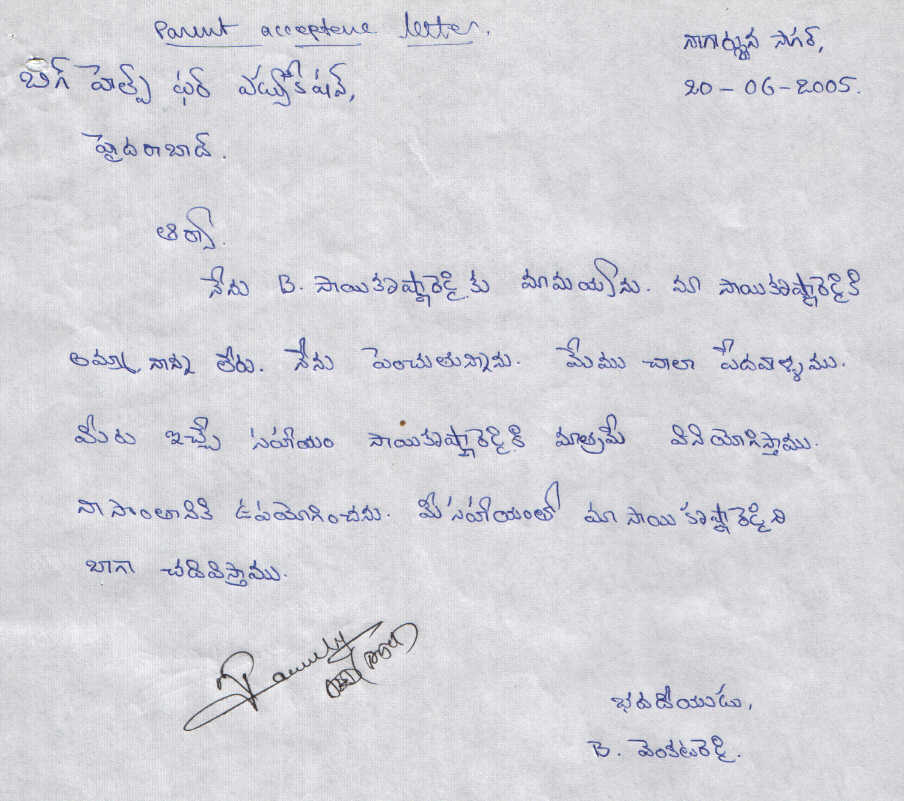 Parent acceptene letter.
నాగార్జున సాగర్,
బిగ్ హెల్ప్ ఫర్ ఎడ్యుకేషన్,
20-06-2005.
హైదరాబాద్.
ఆర్యా.
నేను B. సాయికృష్ణారెడ్డి కు మామయ్యను. మా సాయికృష్ణారెడ్డికి
అమ్మా నాన్న లేరు. నేను పెంచుతున్నాను. మేము చాలా పేదవాళ్ళము.
మీరు ఇచ్చే సహాయం సాయికృష్ణారెడ్డికి మాత్రమే వినియోగిస్తాము.
నా సొంతానికి ఉపయోగించను. మీ సహాయంతో మా సాయికృష్ణారెడ్డిని
బాగా చదివిస్తాము.
భవదీయుడు,
B. వెంకటరెడ్డి.